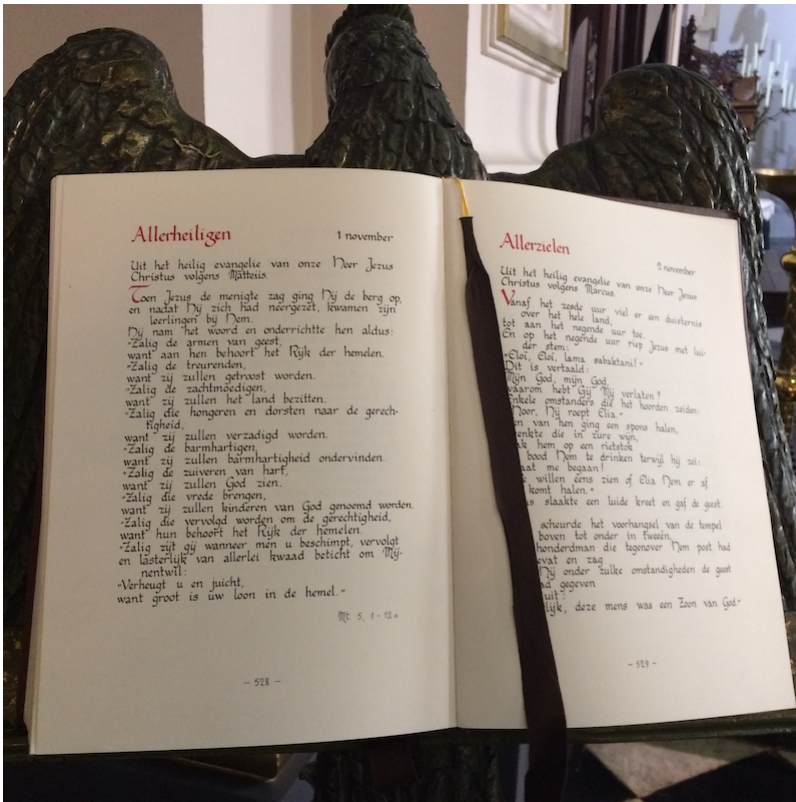 Allerheiligen
1 november
Uit het heilig evangelie van onze Heer Jezus
Christus volgens Matteüs.
Toen Jezus de menigte zag ging Hij de berg op,
en nadat Hij zich had neergezet, kwamen zijn
leerlingen bij Hem.
Hij nam het woord en onderrichtte hen aldus:
"Zalig de armen van geest,
want aan hen behoort het Rijk der hemelen.
"Zalig de treurenden,
want zij zullen getroost worden.
"Zalig de zachtmoedigen,
want zij zullen het land bezitten.
"Zalig die hongeren en dorsten naar de gerech-
tigheid,
want zij zullen verzadigd worden.
"Zalig de barmhartigen,
want zij zullen barmhartigheid ondervinden.
"Zalig de zuiveren van hart,
want zij zullen God zien.
"Zalig die vrede brengen,
want zij zullen kinderen van God genoemd worden.
"Zalig die vervolgd worden om de gerechtigheid,
want hun behoort het Rijk der hemelen.
"Zalig zijt gij wanneer men u beschimpt, vervolgt
en lasterlijk van allerlei kwaad beticht om Mij-
nentwil:
"Verheugt u en juicht,
want groot is uw loon in de hemel."
Mt 5, 1-12a
- 528 -
Allerzielen
2 november
Uit het heilig evangelie van onze Heer Jezus
Christus volgens Marcus.
Vanaf het zesde uur viel er een duisternis
over het hele land,
tot aan het negende uur toe.
En op het negende uur riep Jezus met lui-
der stem:
"Eloï, Eloï, lama sabaktani!"
Dit is vertaald:
Mijn God, mijn God,
waarom hebt Gij Mij verlaten?
Enkele omstanders die het hoorden zeiden:
Hoor, Hij roept Elia."
en van hen ging een spons halen,
enkte die in zure wijn,
ak hem op een rietstok
bood Hem te drinken terwijl hij zei:
aat me begaan!
e willen eens zien of Elia Hem er af
komt halen."
us slaakte een luide kreet en gaf de geest.
scheurde het voorhangsel van de tempel
boven tot onder in tweeën.
honderdman die tegenover Hem post had
evat en zag
Hij onder zulke omstandigheden de geest
ad gegeven
uit:
lijk, deze mens was een Zoon van God."
- 529 -